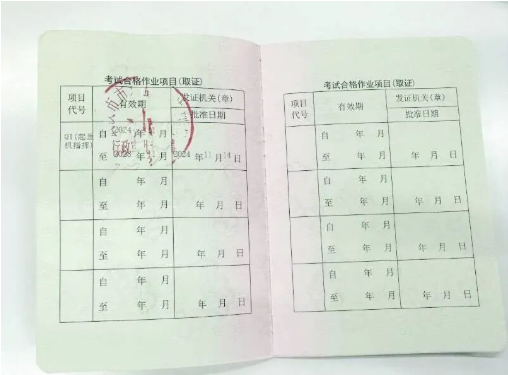 考试合格作业项目(取证)
项目代号 有效期 发证机关(章)
批准日期
Q1(起重机指挥) 自 2024 年 月
至 2028 年 11 月 2024 年 11 月 14 日
自 年 月
至 年 月 年 月 日
自 年 月
至 年 月 年 月 日
自 年 月
至 年 月 年 月 日
考试合格作业项目(取证)
项目代号 有效期 发证机关(章)
批准日期
自 年 月
至 年 月 年 月 日
自 年 月
至 年 月 年 月 日
自 年 月
至 年 月 年 月 日
自 年 月
至 年 月 年 月 日